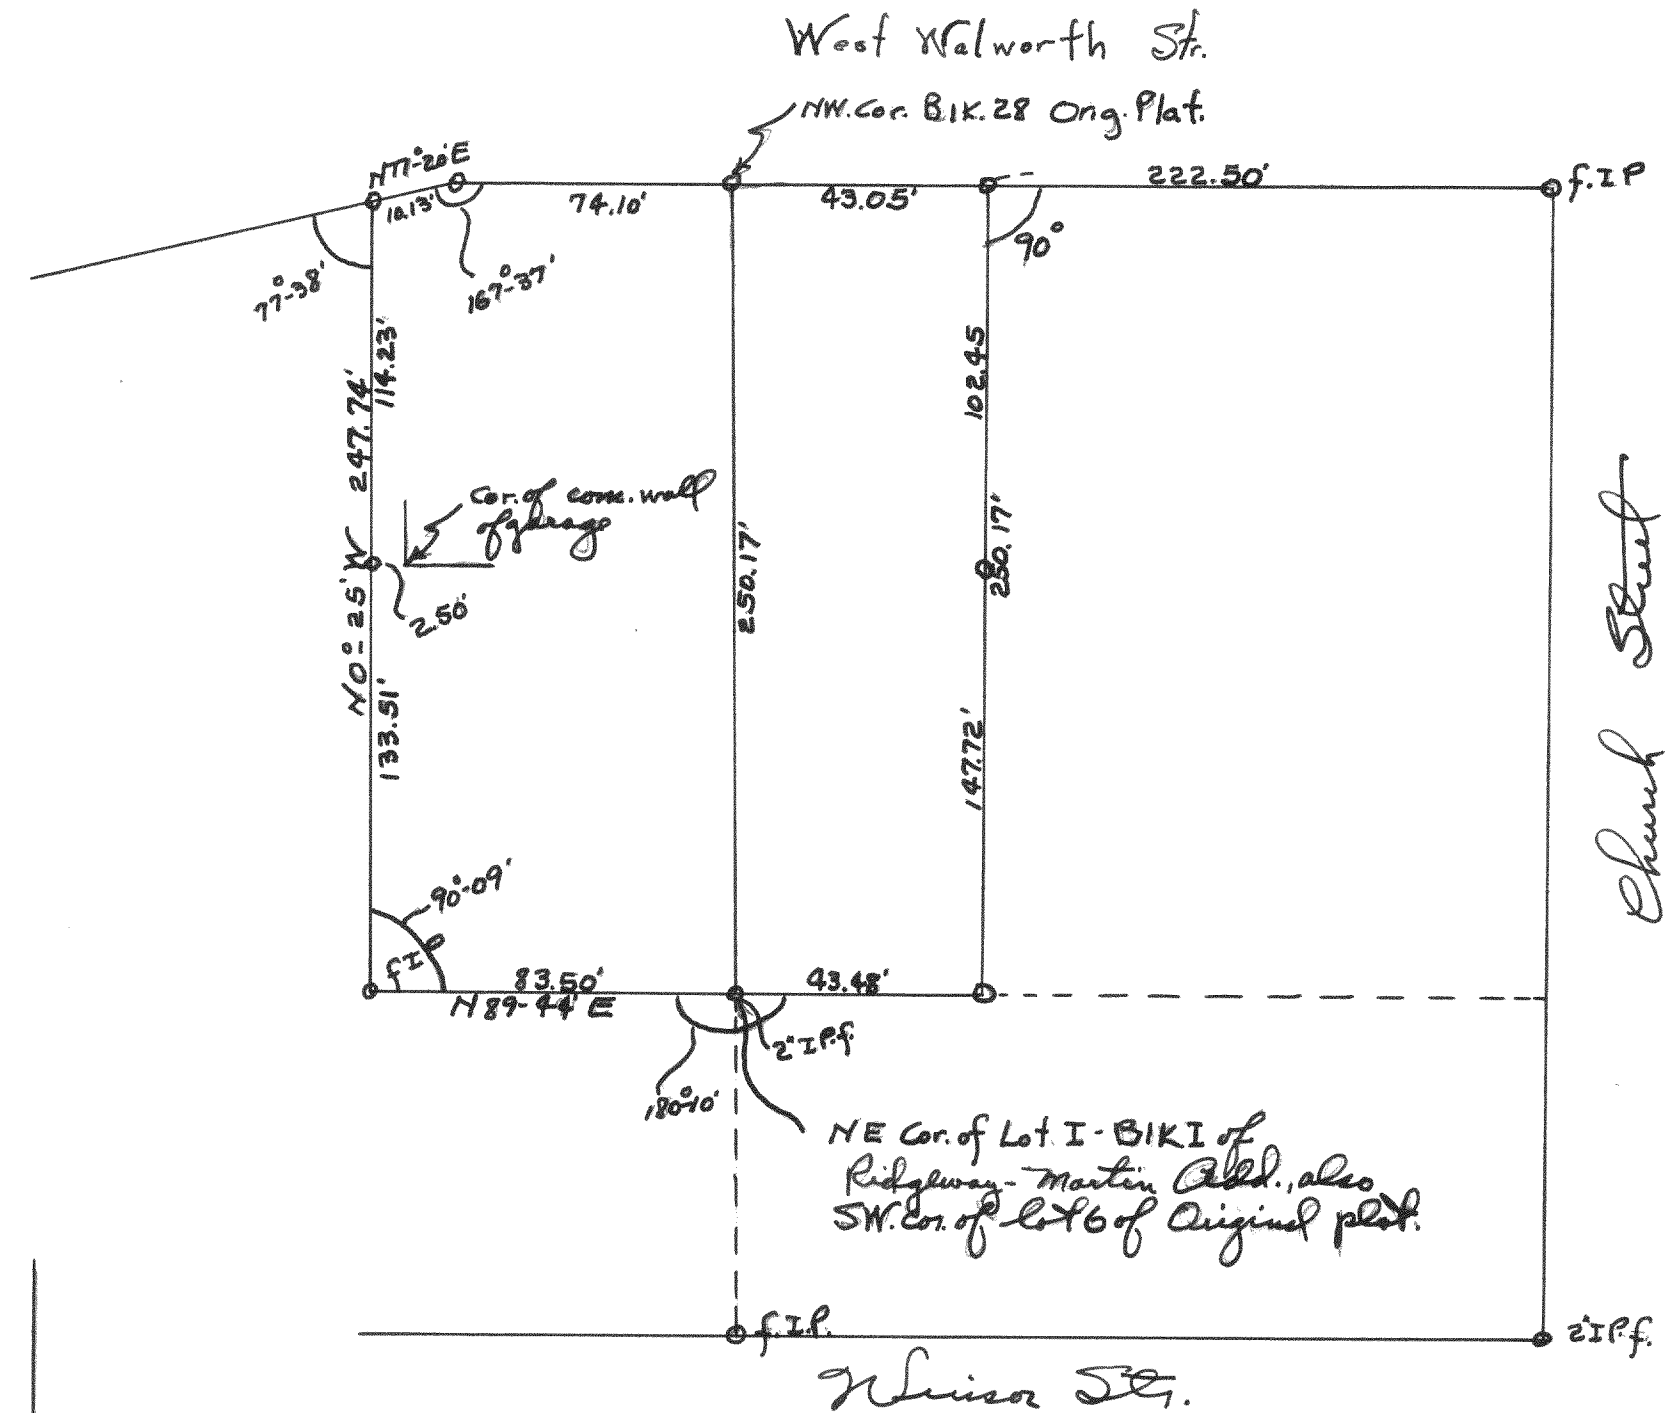 West Walworth Str.
NW. Cor. Blk. 28 Orig. Plat.
N77°-20'E
10.13'
74.10'
43.05'
222.50'
f.I.P
77°-38'
167°-37'
90°
N0°-25'W 247.74'
114.23'
102.45
Cor. of conc. wall
of garage
2.50'
250.17'
250.17'
133.51'
147.72'
Church Street
90°-09'
f I P
83.50'
N 89-44' E
43.48'
2" I.P.f.
180°-10'
NE Cor. of Lot I - Blk I of
Ridgeway - Martin Add., also
SW. cor. of lot 6 of Original plat.
f.I.P.
2" I.P.f.
Str.